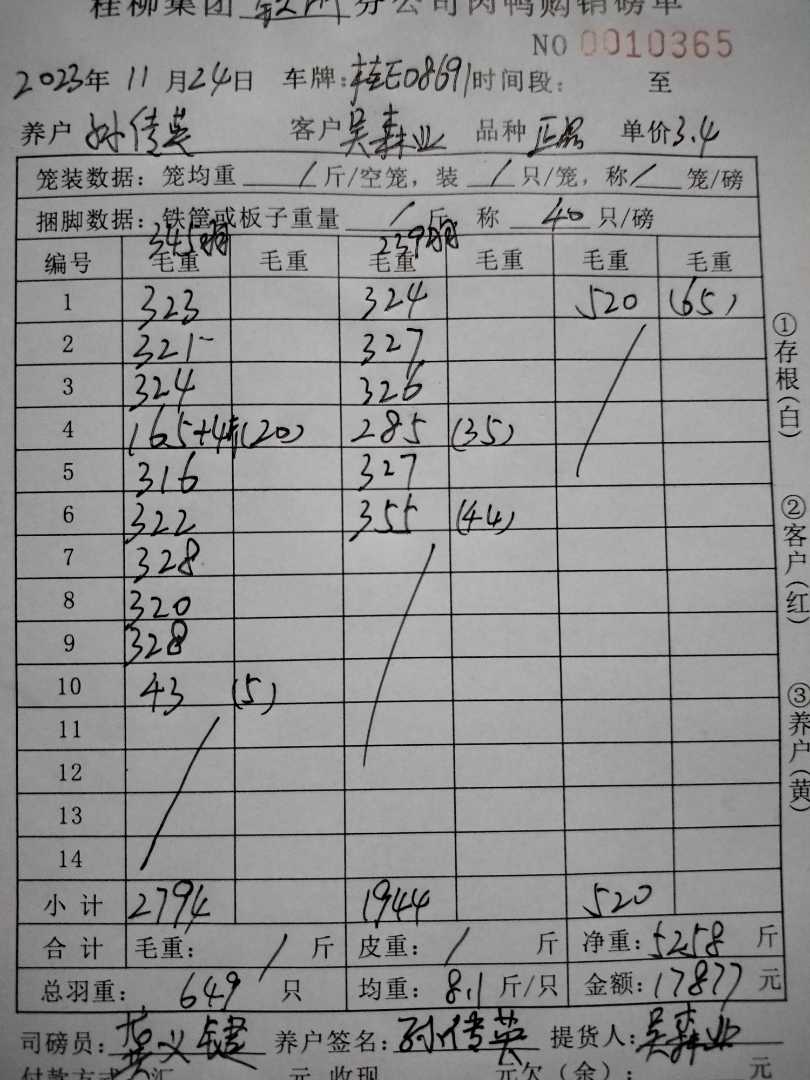 桂柳集团 钦州 分公司肉鸭购销磅单
NO 0010365
2023年 11月24日 车牌:桂E08691 时间段: 至
养户 孙传英 客户 吴森业 品种 正品 单价3.4
笼装数据: 笼均重 / 斤/空笼, 装 / 只/笼, 称 / 笼/磅
捆脚数据: 铁筐或板子重量 / 斤 称 40 只/磅
345 239
编号 毛重 毛重 毛重 毛重 毛重 毛重
1 323 324 520 (65)
2 321 327
3 324 326
4 165+4 (20) 285 (35)
5 316 327
6 322 355 (44)
7 328
8 320
9 328
10 43 (5)
11
12
13
14
小计 2794 1944 520
合计 毛重: / 斤 皮重: / 斤 净重:5258 斤
总羽重: 649 只 均重: 8.1 斤/只 金额:17877 元
司磅员: 养户签名:孙传英 提货人:吴森业
付款方式 汇 元 收现 元欠(余): 元
①存根(白)
②客户(红)
③养户(黄)